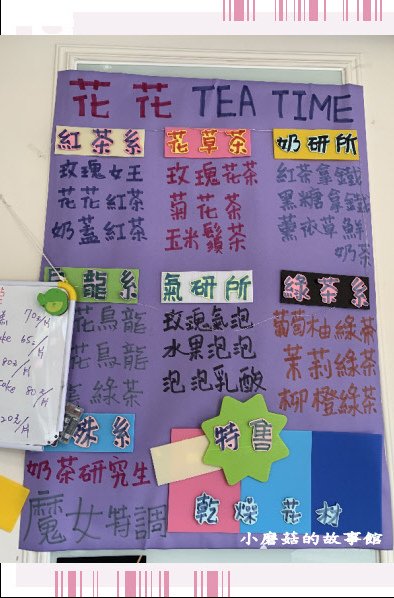 花花 TEA TIME
紅茶系
玫瑰女王
花花紅茶
奶蓋紅茶
花草茶
玫瑰花茶
菊花茶
玉米鬚茶
奶研所
紅茶拿鐵
黑糖拿鐵
薰衣草鮮
奶茶
龍系
花烏龍
花烏龍
綠茶
氣研所
玫瑰氣泡
水果泡泡
泡泡乳酸
綠茶系
葡萄柚綠茶
茉莉綠茶
柳橙綠茶
殊系
奶茶研究生
魔女特調
特售
乾燥花材
70元/片
65元/片
80元/片
80元/片
20元/片
小磨菇的故事館